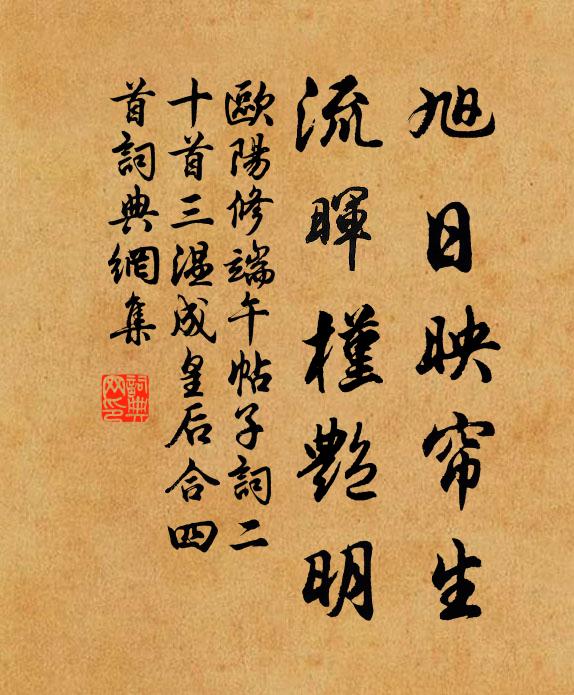 旭日映帘生
流暉槿艷明
歐陽修端午帖子詞二
十首三温成皇后合四
首詞典網集
詞典
网印